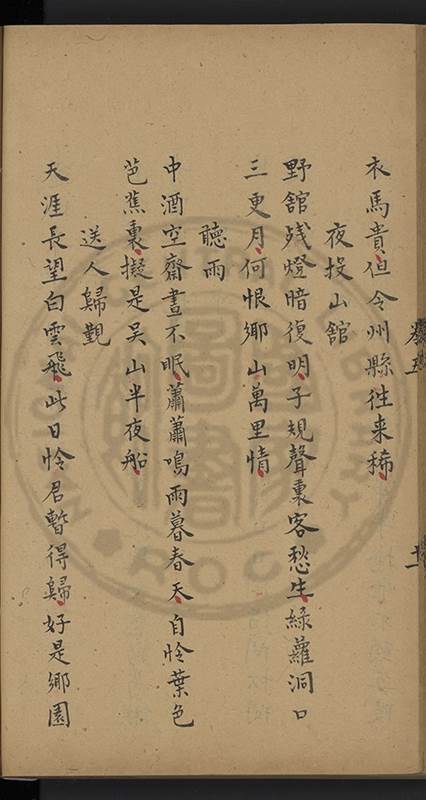 衣馬貴但令州縣往来稀
夜投山舘
野舘残燈暗復明子規聲裏客愁生綠蘿洞口
三更月何恨鄉山萬里情
聽雨
中酒空齋晝不眠蕭蕭鳴雨暮春天自怜葉色
芭蕉裏擬是吴山半夜船
送人歸覲
天涯長望白雲飛此日怜君暫得歸好是鄉園